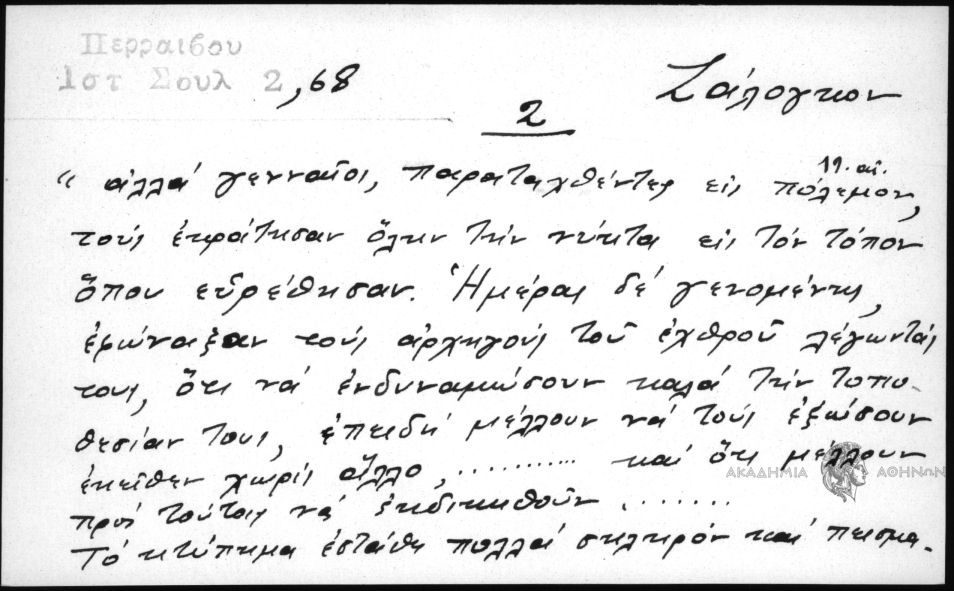 Περραιβου
Ιστ Σουλ 2,68
Ζάλογκον
2
11. αἰ.
" ἀλλά γενναῖοι, παραταχθέντες εἰς πόλεμον,
τούς ἐκράτησαν ὅλην τήν νύκτα εἰς τόν τόπον
ὅπου εὑρέθησαν. Ἡμέρας δέ γενομένης,
ἐφώναξαν τούς ἀρχηγούς τοῦ ἐχθροῦ λέγοντάς
τους, ὅτι νά ἐνδυναμώσουν καλά τήν τοπο-
θεσίαν τους, ἐπειδή μέλλουν νά τούς ἐξώσουν
ἐκεῖθεν χωρίς ἄλλο, ........... καί ὅτι μέλλουν
πρός τούτοις νά ἐκδικηθοῦν .......
Τό κτύπημα ἐστάθη πολλά σκληρόν καί πεισμα-
ΑΚΑΔΗΜΙΑ ΑΘΗΝΩΝ